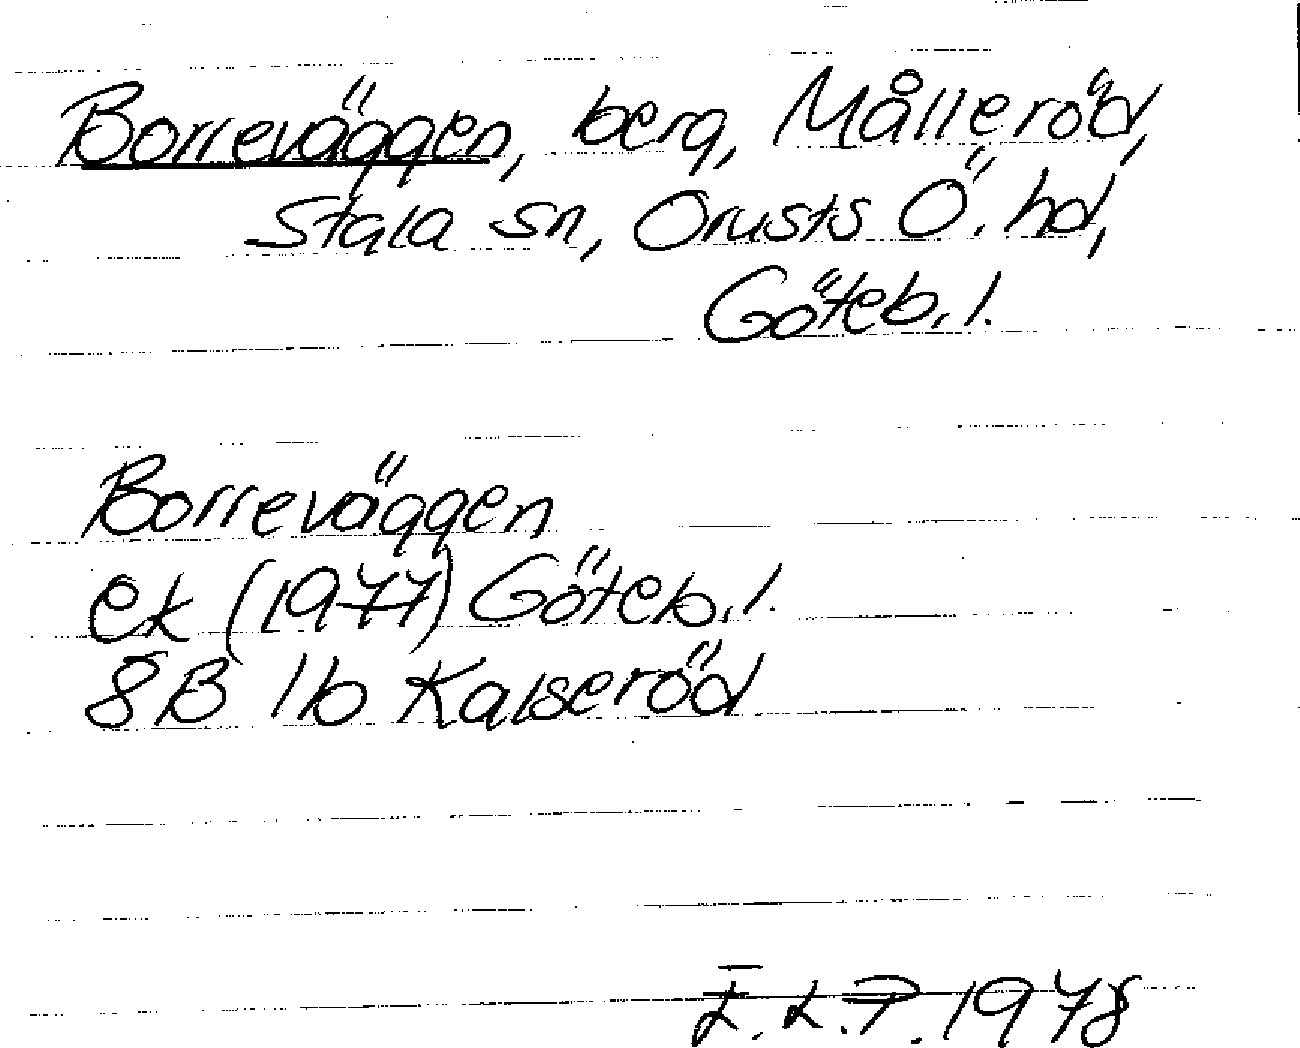 Borreväggen, berg, Målleröd,
Stala sn, Orusts Ö. hd,
Göteb. l.
Borreväggen
ek (1977) Göteb. l.
8B 1b Kalseröd
I. L. P. 1978